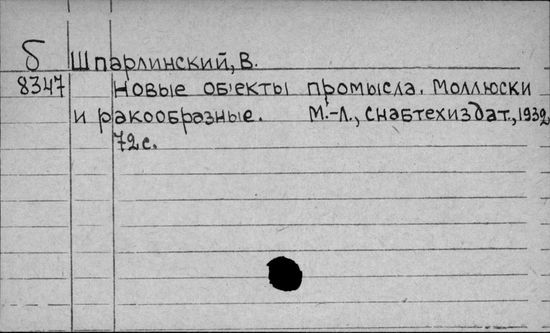 Б Шпарлинский, В.
8347 Новые об'екты промысла. Моллюски
и ракообразные. М.-Л., Снабтехиздат., 1932,
72 с.